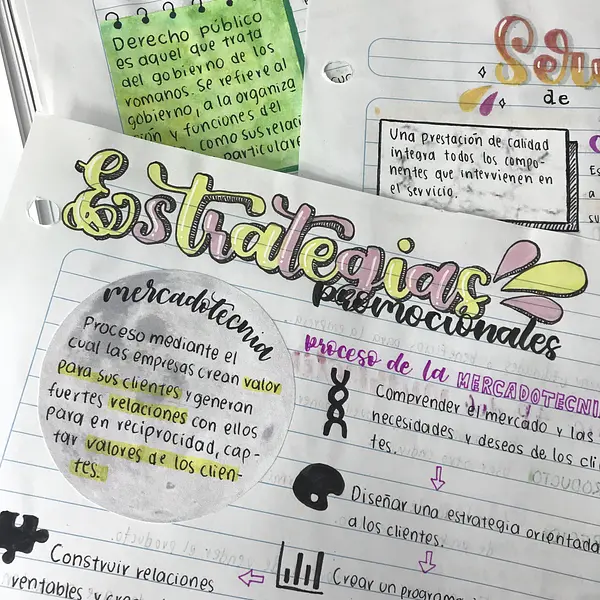 Derecho público
es aquel que trata
del gobierno de los
romanos. Se refiere al
gobierno, a la organiza
y funciones del
como sus relaci
particulare
de
Una prestación de calidad
integra todos los compo-
nentes que intervienen en
el servicio.
Estrategias
promocionales
mercadotecnia
Proceso mediante el
cual las empresas crean valor
para sus clientes y generan
fuertes relaciones con ellos
para en reciprocidad, cap-
tar valores de los clien-
tes.
proceso de la MERCADOTECNI
Comprender el mercado y las
necesidades y deseos de los cli
tes.
Diseñar una estrategia orientada
a los clientes.
Crear un program
Construir relaciones
rentables y